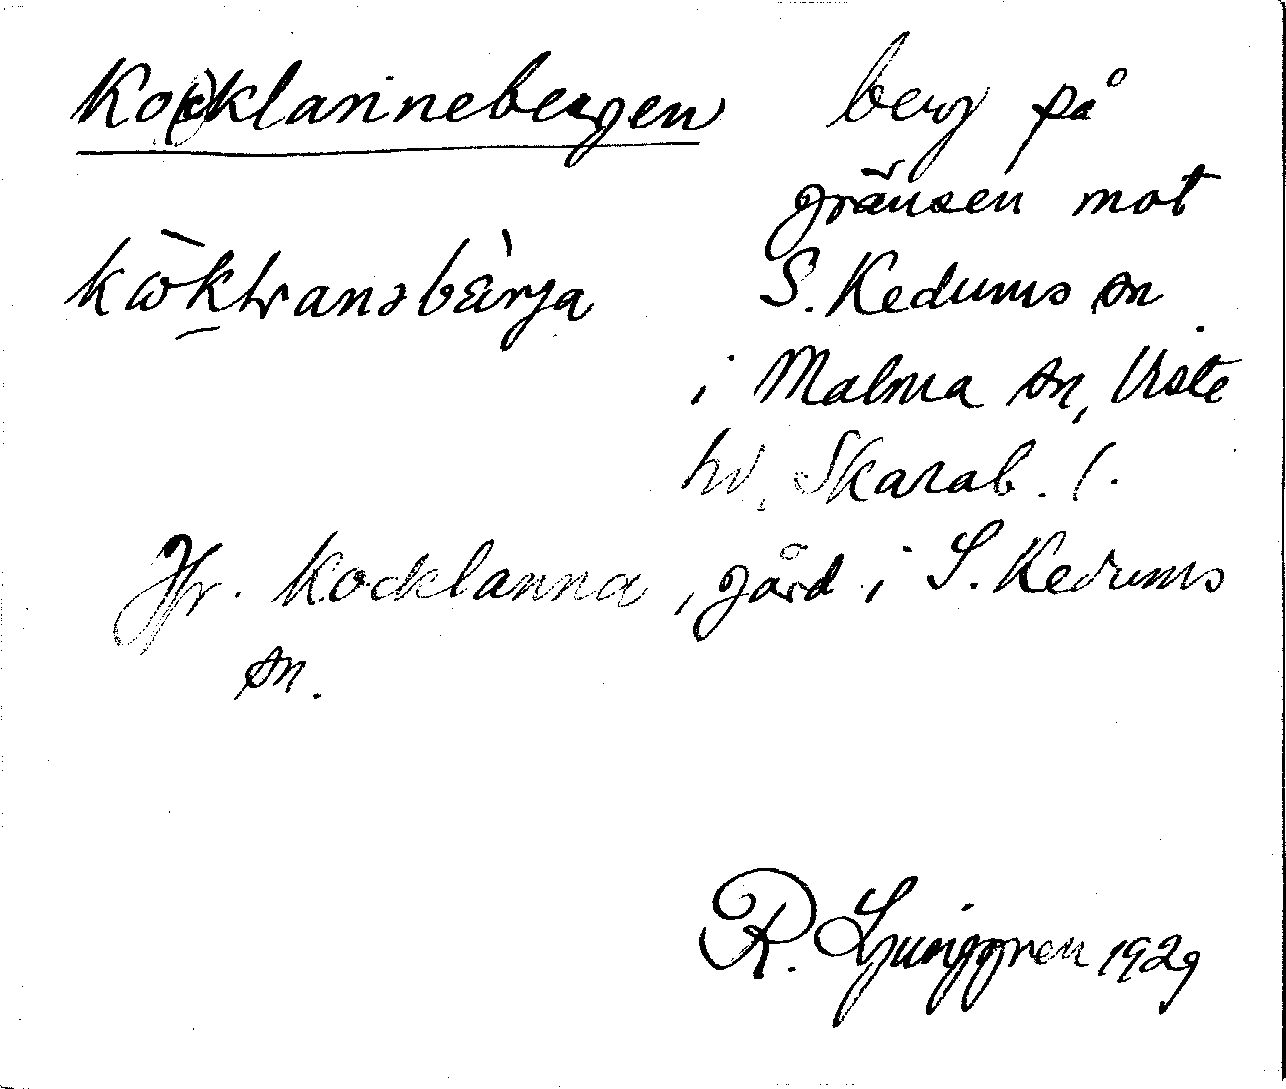 Ko(c)klannebergen berg på
gränsen mot
S. Kedums sn
i Malma sn, Viste
hd, Skarab. l.
Jfr. Kocklanna, gård i S. Kedums
sn.
R. Ljunggren 1929